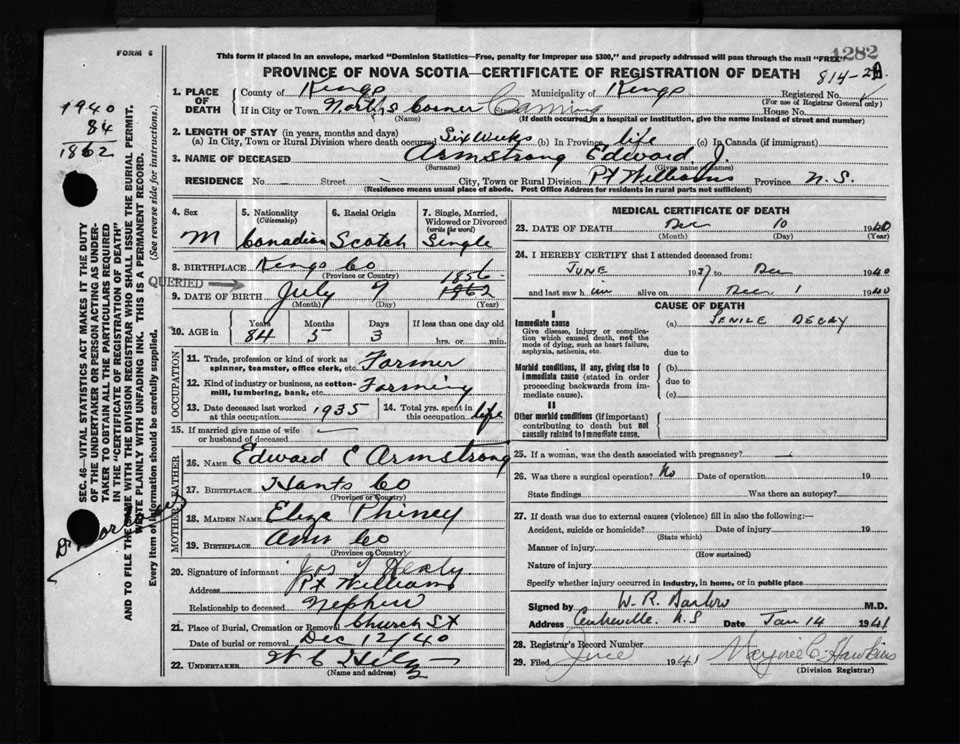 FORM 6
This form if placed in an envelope, marked "Dominion Statistics—Free, penalty for improper use $300," and properly addressed will pass through the mail "FREE"
1282
PROVINCE OF NOVA SCOTIA—CERTIFICATE OF REGISTRATION OF DEATH
814-
1940
84
1862
SEC. 46—VITAL STATISTICS ACT MAKES IT THE DUTY
OF THE UNDERTAKER OR PERSON ACTING AS UNDER-
TAKER TO OBTAIN ALL THE PARTICULARS REQUIRED
IN THE "CERTIFICATE OF REGISTRATION OF DEATH"
AND TO FILE THE SAME WITH THE DIVISION REGISTRAR WHO SHALL ISSUE THE BURIAL PERMIT.
WRITE PLAINLY WITH UNFADING INK. THIS IS A PERMANENT RECORD.
Every item of information should be carefully supplied. (See reverse side for instructions.)
1. PLACE OF DEATH
County of Kings Municipality of Kings Registered No.
(For use of Registrar General only)
If in City or Town North's Corner Street Canning House No.
(Name) (If death occurred in a hospital or institution, give the name instead of street and number)
2. LENGTH OF STAY (in years, months and days)
(a) In City, Town or Rural Division where death occurred Six Weeks (b) In Province life (c) In Canada (if immigrant)
3. NAME OF DECEASED Armstrong Edward J.
(Surname) (Given name or names)
RESIDENCE No. — Street — City, Town or Rural Division Pt Williams Province N. S.
(Residence means usual place of abode. Post Office Address for residents in rural parts not sufficient)
4. Sex
M
5. Nationality (Citizenship)
Canadian
6. Racial Origin
Scotch
7. Single, Married, Widowed or Divorced (write the word)
Single
8. BIRTHPLACE Kings Co
(Province or Country)
QUERIED
1856
9. DATE OF BIRTH July 7 1862
(Month) (Day) (Year)
10. AGE in Years Months Days If less than one day old
84 5 3 hrs. or min.
OCCUPATION
11. Trade, profession or kind of work as spinner, teamster, office clerk, etc. Farmer
12. Kind of industry or business, as cotton-mill, lumbering, bank, etc. Farming
13. Date deceased last worked at this occupation 1935
14. Total yrs. spent in this occupation life
15. If married give name of wife or husband of deceased —
FATHER
16. NAME Edward C Armstrong
17. BIRTHPLACE Hants Co
(Province or Country)
MOTHER
18. MAIDEN NAME Eliza Phiney
19. BIRTHPLACE Ann Co
(Province or Country)
20. Signature of informant Jos Healy
Address Pt Williams
Relationship to deceased Nephew
21. Place of Burial, Cremation or Removal Church St
Date of burial or removal Dec 12/40
22. UNDERTAKER
(Name and address)
MEDICAL CERTIFICATE OF DEATH
23. DATE OF DEATH Dec 10 1940
(Month) (Day) (Year)
24. I HEREBY CERTIFY that I attended deceased from:
JUNE 1937 to Dec 1940
and last saw him alive on Dec 1 1940
CAUSE OF DEATH
I
Immediate cause
Give disease, injury or complication which caused death, not the mode of dying, such as heart failure, asphyxia, asthenia, etc.
(a) SENILE DECAY
due to
Morbid conditions, if any, giving rise to immediate cause (stated in order proceeding backwards from immediate cause).
(b)
due to
(c)
II
Other morbid conditions (if important) contributing to death but not causally related to immediate cause.
25. If a woman, was the death associated with pregnancy? —
26. Was there a surgical operation? No Date of operation 19
State findings Was there an autopsy?
27. If death was due to external causes (violence) fill in also the following:—
Accident, suicide or homicide? Date of injury 19
(State which)
Manner of injury
(How sustained)
Nature of injury
Specify whether injury occurred in industry, in home, or in public place
Signed by W. R. Barlow M.D.
Address Centreville. N.S Date Jan 14 1941
28. Registrar's Record Number
29. Filed June 1941 Marjorie C. Hawkins
(Division Registrar)